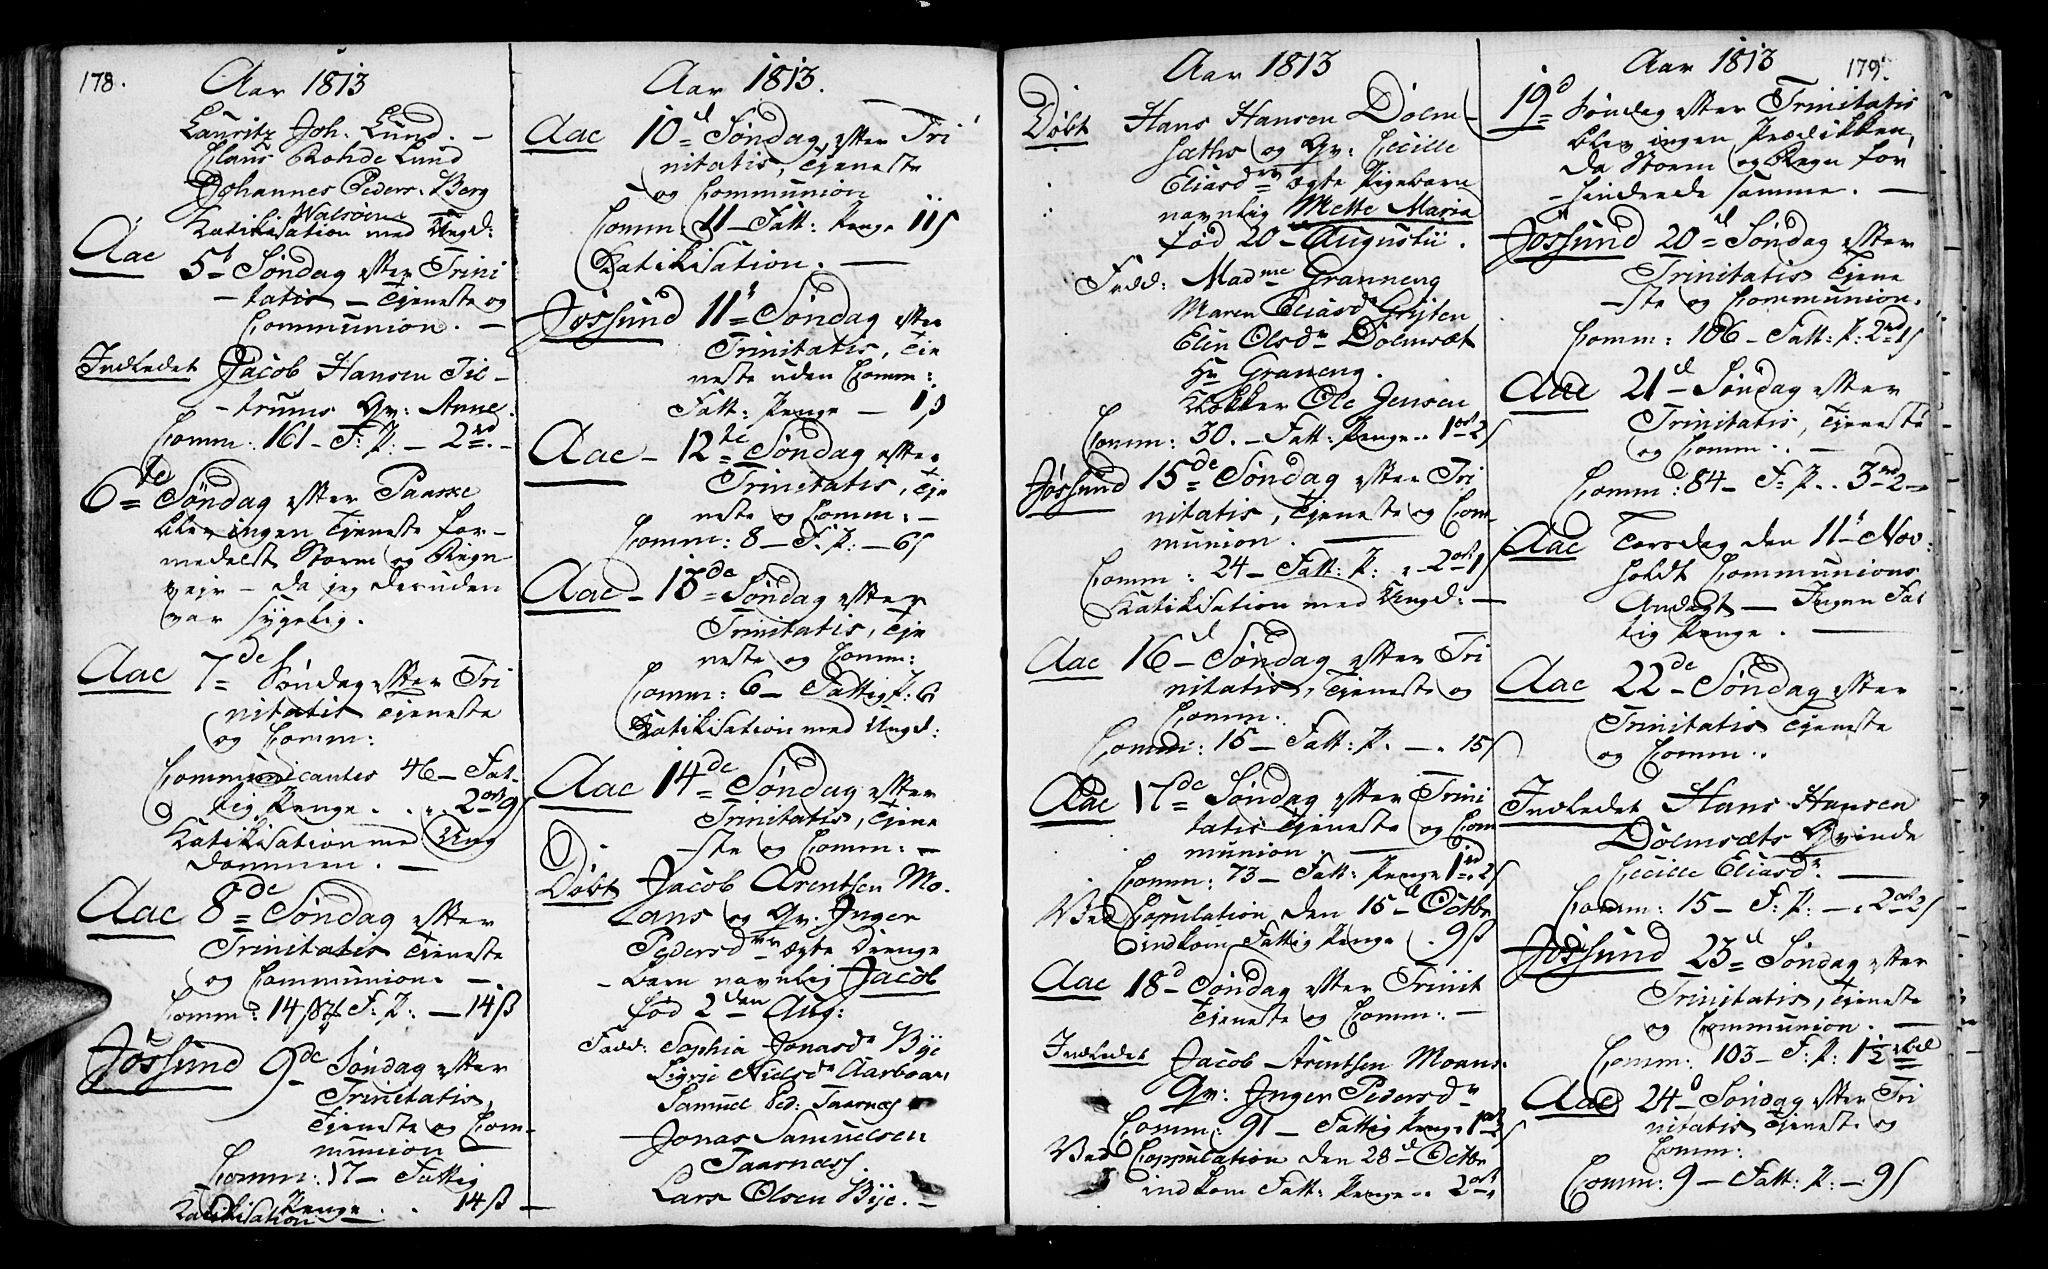 178.
Aar 1813
Lauritz Joh. Lund. —
Claus Rohde Lund
Johannes Peders. Berg
Walsøen
Katikisation med Ungd:
Aae
5t Søndag efter Trini
-tatis — Tjeneste og
Communion. —
Indledet Jacob Hansen Til-
-trums Qv: Anne.
Comm. 161 — F: P: — 2rd. -
6te Søndag efter Paaske
blev ingen Tjeneste for-
medelst Storm og Regn
veir — da jeg desuden
var sygelig.
Aae 7de Søndag efter Tri
nitatis Tjeneste
og Comm:
Communicantes 46 — Fat-
tig Penge . . „ 2ort 9s
Katikisation med Ung
dommen. —
Aae 8de Søndag efter
Trinitatis Tjeneste
og Communion. —
Comm: 14 F: P: — 14ß
Jøssund 9de Søndag efter
Trinitatis,
Tjeneste og Com-
munion —
Comm: 17 — Fattig
Penge . . 14ß —
Katikisation —
Aar 1813.
Aae 10d Søndag efter Tri
nitatis, Tjeneste
og Communion
Comm: 11 — Fatt: Penge 11s
Katikisation. —
Jøssund 11te Søndag efter
Trinitatis, Tje
neste uden Comm:
Fatt: Penge — 1ß
Aae — 12te Søndag efter
Trinitatis, Tje
neste og Comm: —
Comm: 8 — F. P: — 6s
Aae — 13de Søndag efter
Trinitatis, Tje
neste og Comm:
Comm: 6 — Fattig P: 6
Katikisation med Ungd:
Aae 14de Søndag efter
Trinitatis, Tjene
-ste og Comm: —
Døbt Jacob Arentsen Mo-
ans og Qv. Inger
Pedersdr ægte Drenge
-barn navnlig Jacob
fød 2den Aug:
Fadd: Sophia Jonasdr Bye
Sigrie Nielsdr Aarboen
Samuel Ped: Taarnes
Jonas Samuelsen
Taarness.
Lars Olsen Bye. —
Aar 1813
Døbt Hans Hansen Dolm-
sæths og Qv: Cecille
Eliasdr ægte Pigebarn
navnlig Mette Maria
fød 20 — Augustii.
Fadd: Madme Granneng
Maren Eliasdr Grÿten
Elin Olsdr Dolmsæt
Hr Graneng.
Klokker Ole Jensen
Comm: 30. — Fatt: Penge .. 1ort 2s
Jøssund 15de Søndag efter Tri
nitatis, Tjeneste og Com-
munion. —
Comm: 24 — Fatt: P: „ 2ort 1s
Katikisation med Ungd: —
Aae 16d — Søndag efter Tri
nitatis, Tjeneste og
Comm.
Comm: 15 — Fatt: P. — . 15s
Aae 17de Søndag efter Trini
tatis Tjeneste og Com
munion. —
Comm: 73 — Fatt: Penge 1rd. 2s
Ved Copulation den 15d Octbr
indkom Fattig Penge . 9ß
Aae 18d — Søndag efter Trinit
Tjeneste og Comm. —
Indledet Jacob Arentsen Moans.
Qv: Inger Pedersdr
Comm: 91 — Fattig Penge 1ort
Ved Coppulation den 28d Octbr
indkom Fatt: Penge .. 2ort
Aar 1813
179.
19d Søndag efter Trinitatis
blev ingen Prædikken,
da Storm og Regn for
-hindrede samme. —
Jøssund 20d Søndag efter
Trinitatis Tjene
-ste og Communion.
Comm: 106 — Fatt: P: 2rd 1s
Aae 21d — Søndag efter
Trinitatis, Tjeneste
og Comm. —
Comm: 84 — F: P . . 3rd 2
Aae Torsdag den 11t Nov:
holdt Communions
Andagt — Ingen Fat
tig Penge. —
Aae 22de — Søndag efter
Trinitatis Tjeneste
og Comm..
Indledet Hans Hansen
Dolmsæts Qvinde
Cecille Eliasdr. —
Comm: 15 — F: P: — „ 2ort 2s
Jøssund 23d Søndag efter
Trinitatis, Tjeneste
og Communion. —
Comm: 103 — F: P: 1½ rbd
Aae 24d — Søndag efter Tri
nitatis Tjeneste og
Comm:
Comm: 9 — Fatt: P: —: 9s